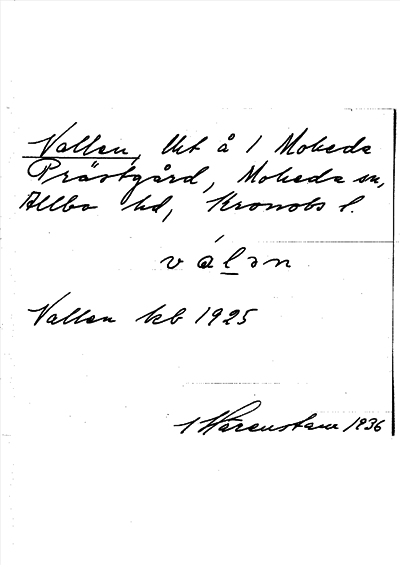 Vallen, Uet å 1 Moheda
Prästgård, Moheda sn,
Allbo hd, Kronobs l.
válən
Vallen kb 1925
Wärenstam 1936